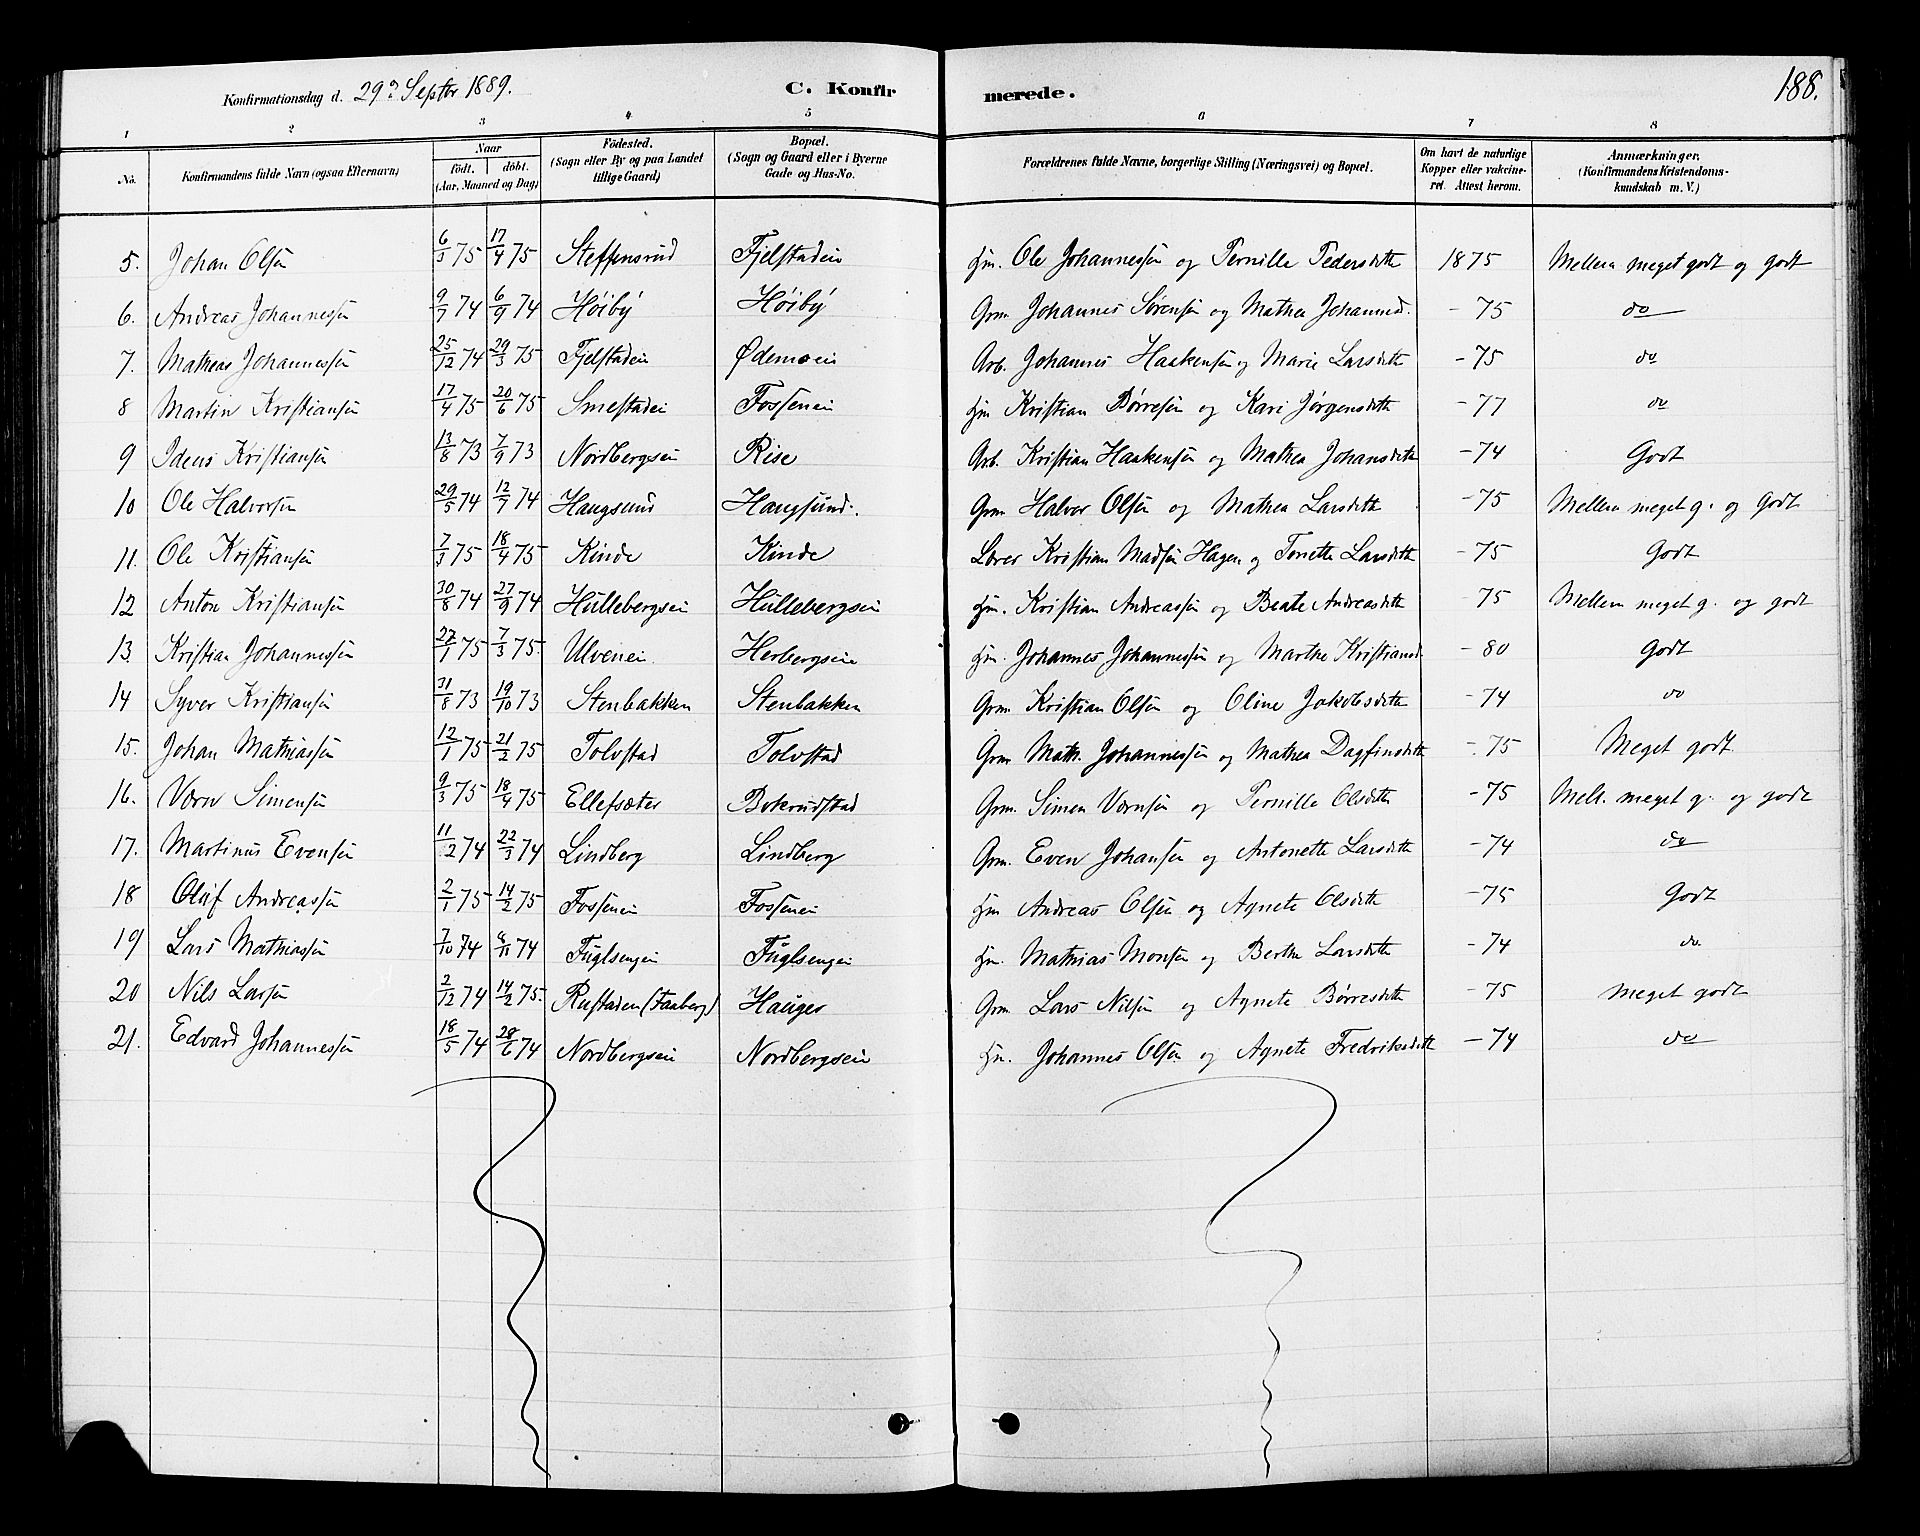 Konfirmationsdag d. 29de Septbr 1889. C. Konfirmerede. 188.
1 2 3 4 5 6 7 8
No. Konfirmandens fulde Navn (ogsaa Efternavn) Naar født. døbt. (Aar, Maaned og Dag) Fødested. (Sogn eller By og paa Landet tillige Gaard) Bopæl. (Sogn og Gaard eller i Byerne Gade og Hus-No. Forældrenes fulde Navne, borgerlige Stilling (Næringsvei) og Bopæl. Om havt de naturlige Kopper eller vakcineret. Attest herom. Anmærkninger. (Konfirmandens Kristendomskundskab m. V.)
5. Johan Olsen 6/3 75 17/4 75 Steffensrud Fjelstadei Hm. Ole Johannessen og Pernille Pedersdtt 1875 Mellem meget godt og godt
6. Andreas Johannessen 9/7 74 6/9 74 Høiby Høiby Grm. Johannes Sørensen og Mathea Johannesd. - 75 do
7. Matheas Johannessen 25/12 74 29/3 75 Fjelstadei Ødemoei Arb. Johannes Haakensen og Marie Larsdtt - 75 do
8 Martin Kristiansen 17/4 75 20/6 75 Smestadei Fossenei Hm Kristian Børresen og Kari Jørgensdtt - 77 do
9 Ideus Kristiansen 13/8 73 7/9 73 Nordbergsei Rise Arb. Kristian Haakensen og Mathea Johansdtt - 74 Godt
10 Ole Halvorsen 29/5 74 12/7 74 Haugsund Haugsund. Grm Halvor Olsen og Mathea Larsdtt - 75 Mellem meget g. og godt
11. Ole Kristiansen 7/3 75 18/4 75 Kinde Kinde Lærer Kristian Madsen Hagen og Tonette Larsdtt - 75 Godt
12 Anton Kristiansen 30/8 74 27/9 74 Hullebergsei Hullebergsei Hm. Kristian Andreassen og Beate Andreasdtt - 75 Mellem meget g. og godt
13. Kristian Johannessen 27/1 75 7/3 75. Ulvenei Herbergsei Hm. Johannes Johannessen og Marthe Kristiansd. - 80 Godt
14 Syver Kristiansen 31/8 73 19/10 73 Stenbakken Stenbakken Grm Kristian Olsen og Oline Jakobsdtt - 74 do
15. Johan Mathiassen 12/1 75 21/2 75 Tolvstad Tolvstad Grm Math. Johannessen og Mathea Dagfinsdtt - 75 Meget godt
16. Værn Simensen 9/3 75 18/4 75 Ellefsæter Bokrudstad Grm. Simen Værnsen og Pernille Olsdtt - 75 Mell. meget g. og godt
17. Martinus Evensen 11/2 74 22/3 74 Lindberg Lindberg Grm. Even Johansen og Antonette Larsdtt - 74 do
18 Oluf Andreassen 2/1 75 14/2 75 Fossenei Fossenei Hm Andreas Olsen og Agnete Olsdtt - 75 Godt
19 Lars Mathiassen 7/10 74 8/11 74 Fuglsengei Fuglsengei Hm. Mathias Monsen og Berthe Larsdtt - 74 do.
20 Nils Larsen 2/12 74 14/2 75. Rustaden (Faaberg) Hauger Grm. Lars Nilsen og Agnete Børresdtt - 75 Meget godt
21. Edvard Johannessen 18/5 74 28/6 74 Nordbergsei Nordbergsei Hm. Johannes Olsen og Agnete Fredriksdtt - 74 do